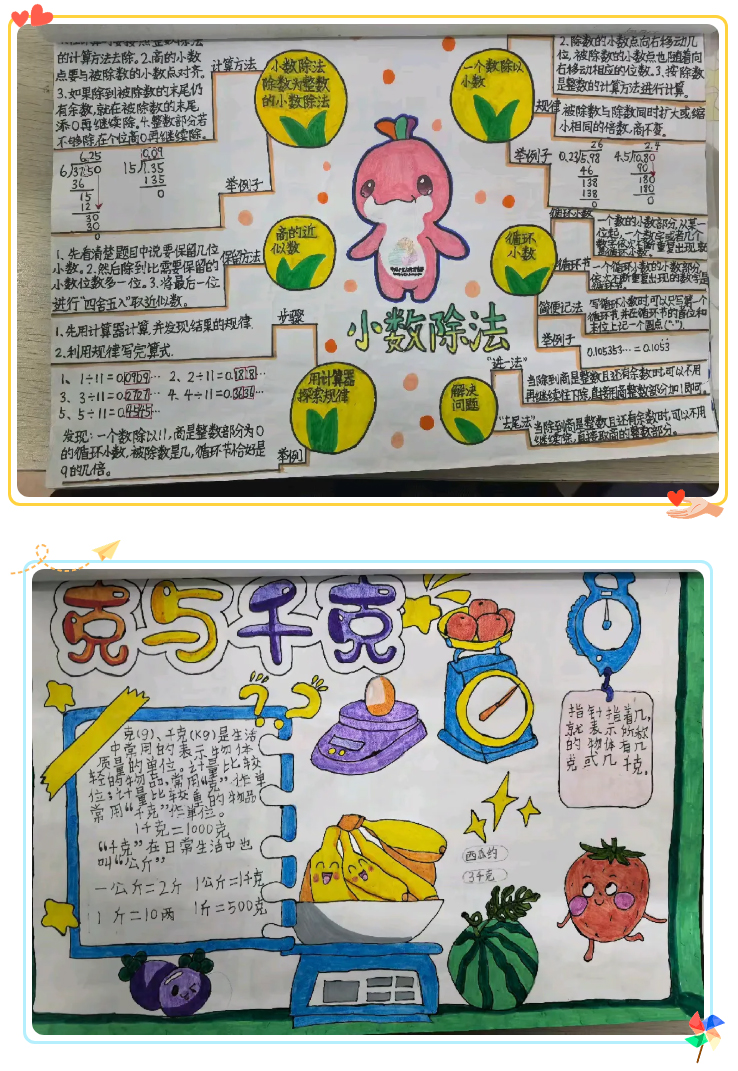 的计算方法去除。2.商的小数
点要与被除数的小数点对齐.
3.如果除到被除数的末尾仍
有余数,就在被除数的末尾
添0再继续除。4.整数部分若
不够除,在个位商0再继续除.
计算方法
小数除法
除数为整数
的小数除法
6.25
6√37.50
36
15
12
30
30
0
0.09
15√1.35
135
0
举例子
1、先看清楚题目中说要保留几位
小数。2.然后除到比需要保留的
小数位数多一位。3.将最后一位
进行"四舍五入"取近似数。
保留方法
商的近
似数
1.先用计算器计算,并发现结果的规律.
2.利用规律写完算式.
步骤
1、1÷11=0.0909… 2、2÷11=0.1818…
3、3÷11=0.2727… 4、4÷11=0.3636…
5、5÷11=0.4545…
发现:一个数除以11,商是整数部分为0
的循环小数,被除数是几,循环节恰好是
9的几倍。
举例
用计算器
探索规律
小数除法
一个数除以
小数
2.除数的小数点向右移动几
位,被除数的小数点也随着向
右移动相应的位数。3.按除数
是整数的计算方法进行计算。
规律
被除数与除数同时扩大或缩
小相同的倍数,商不变。
举例子
26
0.23√5.98
46
138
138
0
2.4
4.5√10.80
90
180
180
0
循环
小数
循环小数
一个数的小数部分,从某一
循环节
一个循环小数的小数部分,
简便记法
写循环小数时,可以只写第一个
循环节,并在循环节的首位和
末位上记一个圆点("·")。
举例子
0.105353…=0.1053
解决
问题
"进一法"
当除到商是整数且还有余数时,可以不用
再继续往下除,直接用商整数部分加1即可。
"去尾法"
当除到商是整数且还有余数时,可以不用
继续除,直接取商的整数部分。
克与千克
克(g)、千克(Kg)是生活
中常用的表示物体
质量的单位。计量比较
轻的物品,常用“克”作单
位;计量比较重的物品,
常用“千克”作单位。
1千克=1000克
“千克”在日常生活中也
叫“公斤”
一公斤=2斤 1公斤=1千克
1斤=10两 1斤=500克
指针指着几,
就表示所称
的物体有几
克或几千克。
西瓜约
3千克